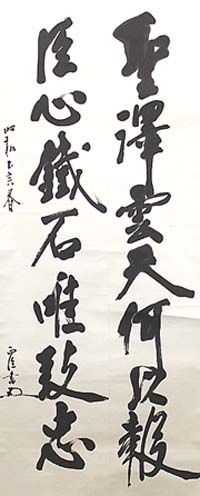 聖澤雲天何以報
臣心鐵石唯致忠
昭和乙亥春